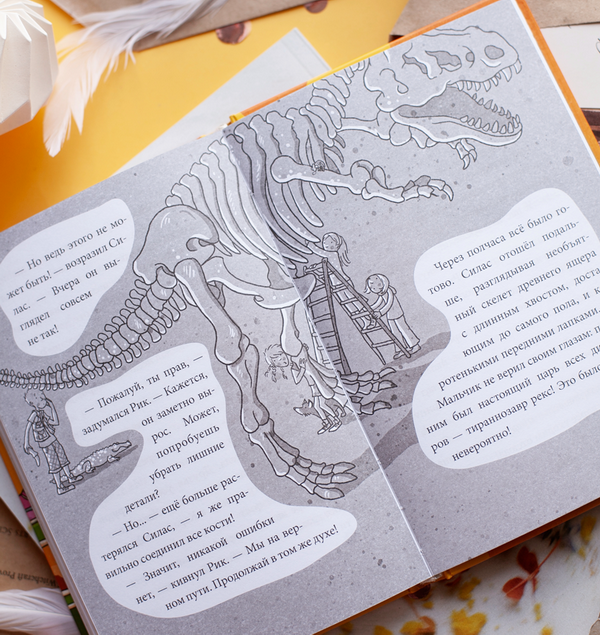 — Но ведь этого не мо-
жет быть! — возразил Си-
лас. — Вчера он вы-
глядел совсем
не так!
— Пожалуй, ты прав, —
задумался Рик. — Кажется,
он заметно вы-
рос. Может,
попробуешь
убрать лишние
детали?
— Но... — ещё больше рас-
терялся Силас, — я же пра-
вильно соединил все кости!
— Значит, никакой ошибки
нет, — кивнул Рик. — Мы на вер-
ном пути. Продолжай в том же духе!
Через полчаса всё было го-
тово. Силас отошёл подаль-
ше, разглядывая необъят-
ный скелет древнего ящера
с длинным хвостом, доста
ющим до самого пола, и к
ротенькими передними лапками.
Мальчик не верил своим глазам: п
ним был настоящий царь всех ди
ров — тираннозавр рекс! Это было
невероятно!